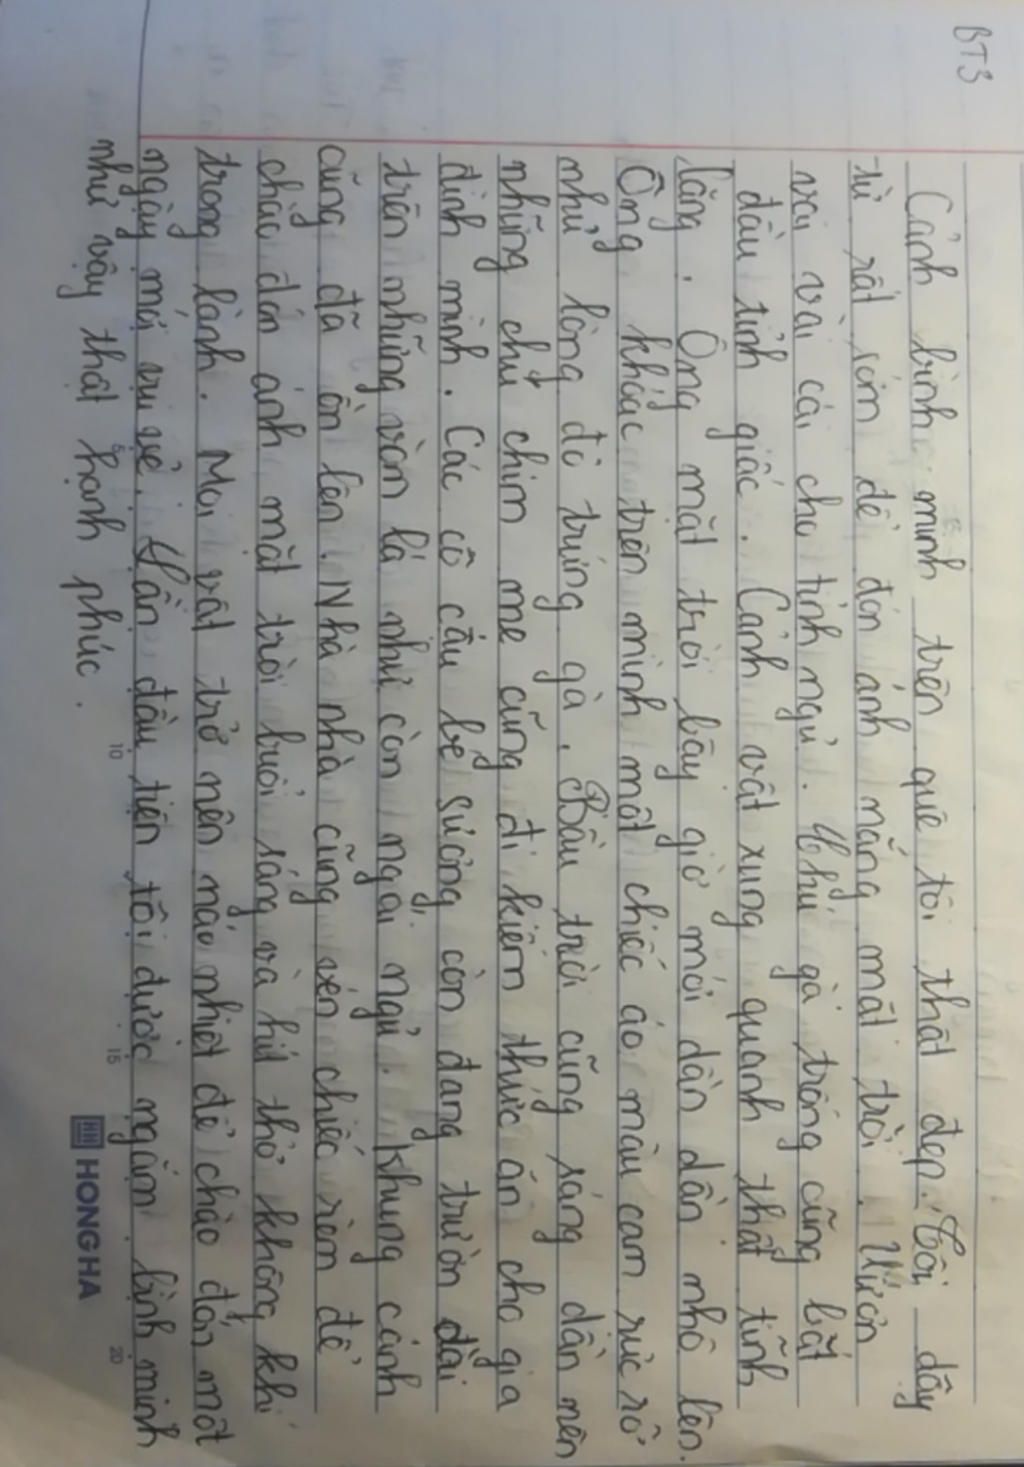 BT3
Cảnh bình minh trên quê tôi thật đẹp. Tôi dậy
từ rất sớm để đón ánh nắng mặt trời. Vươn
vai vài cái cho tỉnh ngủ. Chú gà trống cũng bắt
đầu tỉnh giấc. Cảnh vật xung quanh thật tĩnh
lặng. Ông mặt trời bây giờ mới dần dần nhô lên.
Ông khoác trên mình một chiếc áo màu cam rực rỡ
như lòng đỏ trứng gà. Bầu trời cũng sáng dần nên
những chú chim mẹ cũng đi kiếm thức ăn cho gia
đình mình. Các cô cậu bé sương còn đang trườn dài
trên những vòm lá như còn ngái ngủ. Khung cảnh
cũng đã ồn lên. Nhà nhà cũng vén chiếc rèm để
chào đón ánh mặt trời buổi sáng và hít thở không khí
trong lành. Mọi vật trở nên náo nhiệt để chào đón một
ngày mới vui vẻ. Lần đầu tiên tôi được ngắm bình minh
như vậy thật hạnh phúc.
5 10 15 20
HONG HA